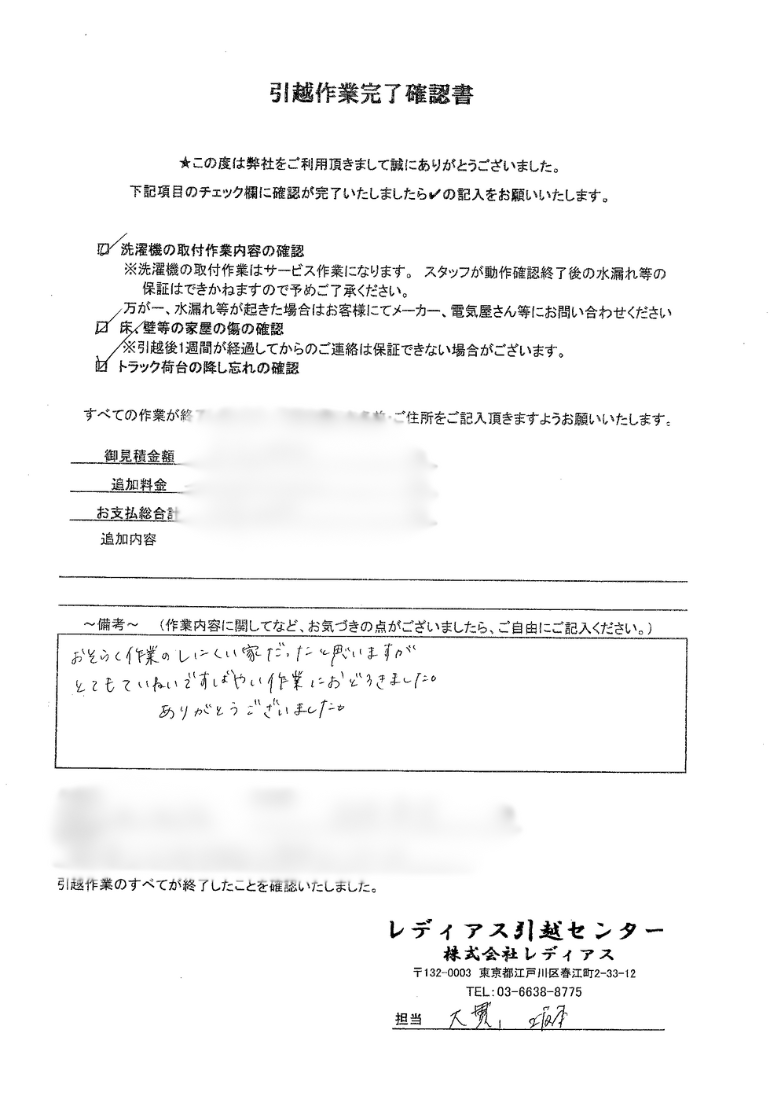 引越作業完了確認書
★この度は弊社をご利用頂きまして誠にありがとうございました。
下記項目のチェック欄に確認が完了いたしましたら✔の記入をお願いいたします。
☑ 洗濯機の取付作業内容の確認
※洗濯機の取付作業はサービス作業になります。 スタッフが動作確認終了後の水漏れ等の
保証はできかねますので予めご了承ください。
万が一、水漏れ等が起きた場合はお客様にてメーカー、電気屋さん等にお問い合わせください
☑ 床、壁等の家屋の傷の確認
※引越後1週間が経過してからのご連絡は保証できない場合がございます。
☑ トラック荷台の降し忘れの確認
すべての作業が終 ご住所をご記入頂きますようお願いいたします。
御見積金額
追加料金
お支払総合計
追加内容
～備考～ （作業内容に関してなど、お気づきの点がございましたら、ご自由にご記入ください。）
おそらく作業のしにくい家だったと思いますが
とてもていねいですばやい作業におどろきました。
ありがとうございました。
引越作業のすべてが終了したことを確認いたしました。
レディアス引越センター
株式会社レディアス
〒132-0003 東京都江戸川区春江町2-33-12
TEL:03-6638-8775
担当 大貫